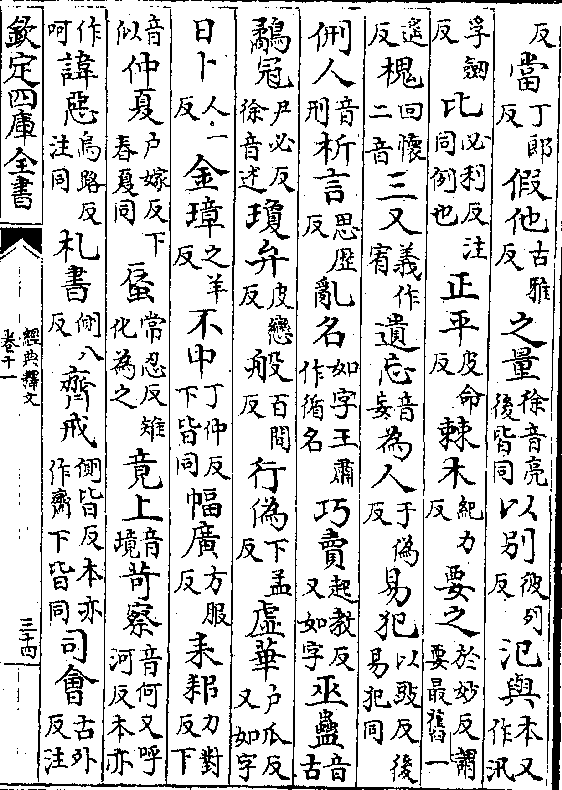 反當丁郎反假他古雅反之量徐音亮後皆同以別彼列反汜與本又作汎
孚劒反比必利反注同例也正平皮命反棘木紀力反要之於妙反謂要最舊一
遥反槐回懷二音三又義作宥遺忘音妄為人于偽反易犯以豉反後易犯同
侀人音刑析言思歷反亂名如字王肅作循名巧賣起教反又如字巫蠱音古
鷸冠尹必反徐音述瓊弁皮戀反般百間反行偽下孟反虛華户瓜反又如字
日卜人一反金璋之羊反不中丁仲反下皆同幅廣方服反耒耜力對反下
音似仲夏户嫁反下春夏同蜃常忍反雉化為之竟上音境苛察音何又呼河反本亦
作呵諱惡烏路反注同札書側八反齊戒側皆反本亦作齋下皆同司會古外反注
欽定四庫全書
經典釋文
卷十一
三十四